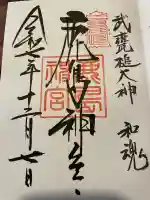 武甕槌大神
和魂
鹿島神宮
鹿島
神宮
令和 年十二月七日